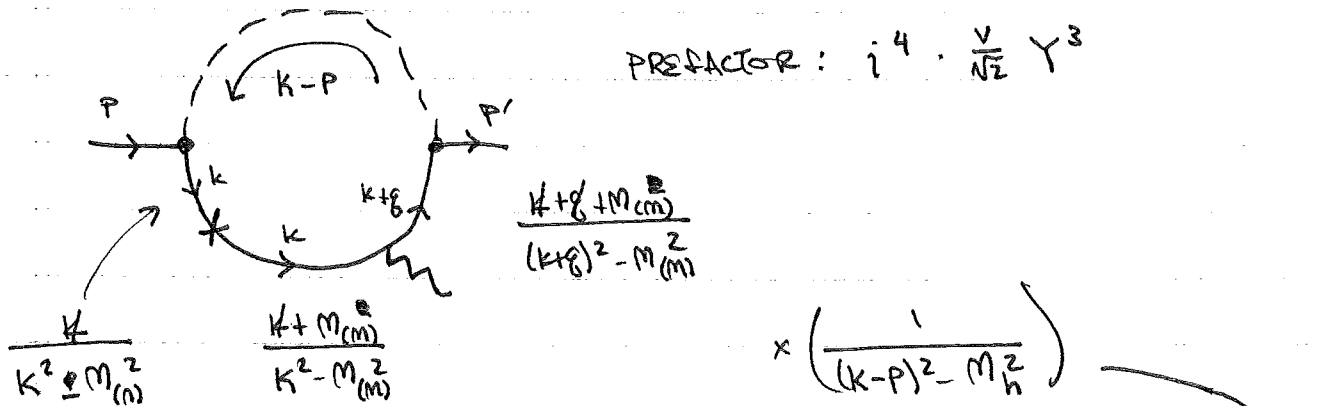 PREFACTOR : i⁴ · v/√2 Y³
k-p
p
p'
k
k+q
k
(k̸+q̸+m_(m))/((k+q)²-m_(m)²)
k̸/(k²-m_(n)²)
(k̸+m_(m))/(k²-m_(m)²)
×(1/((k-p)²-m_h²))